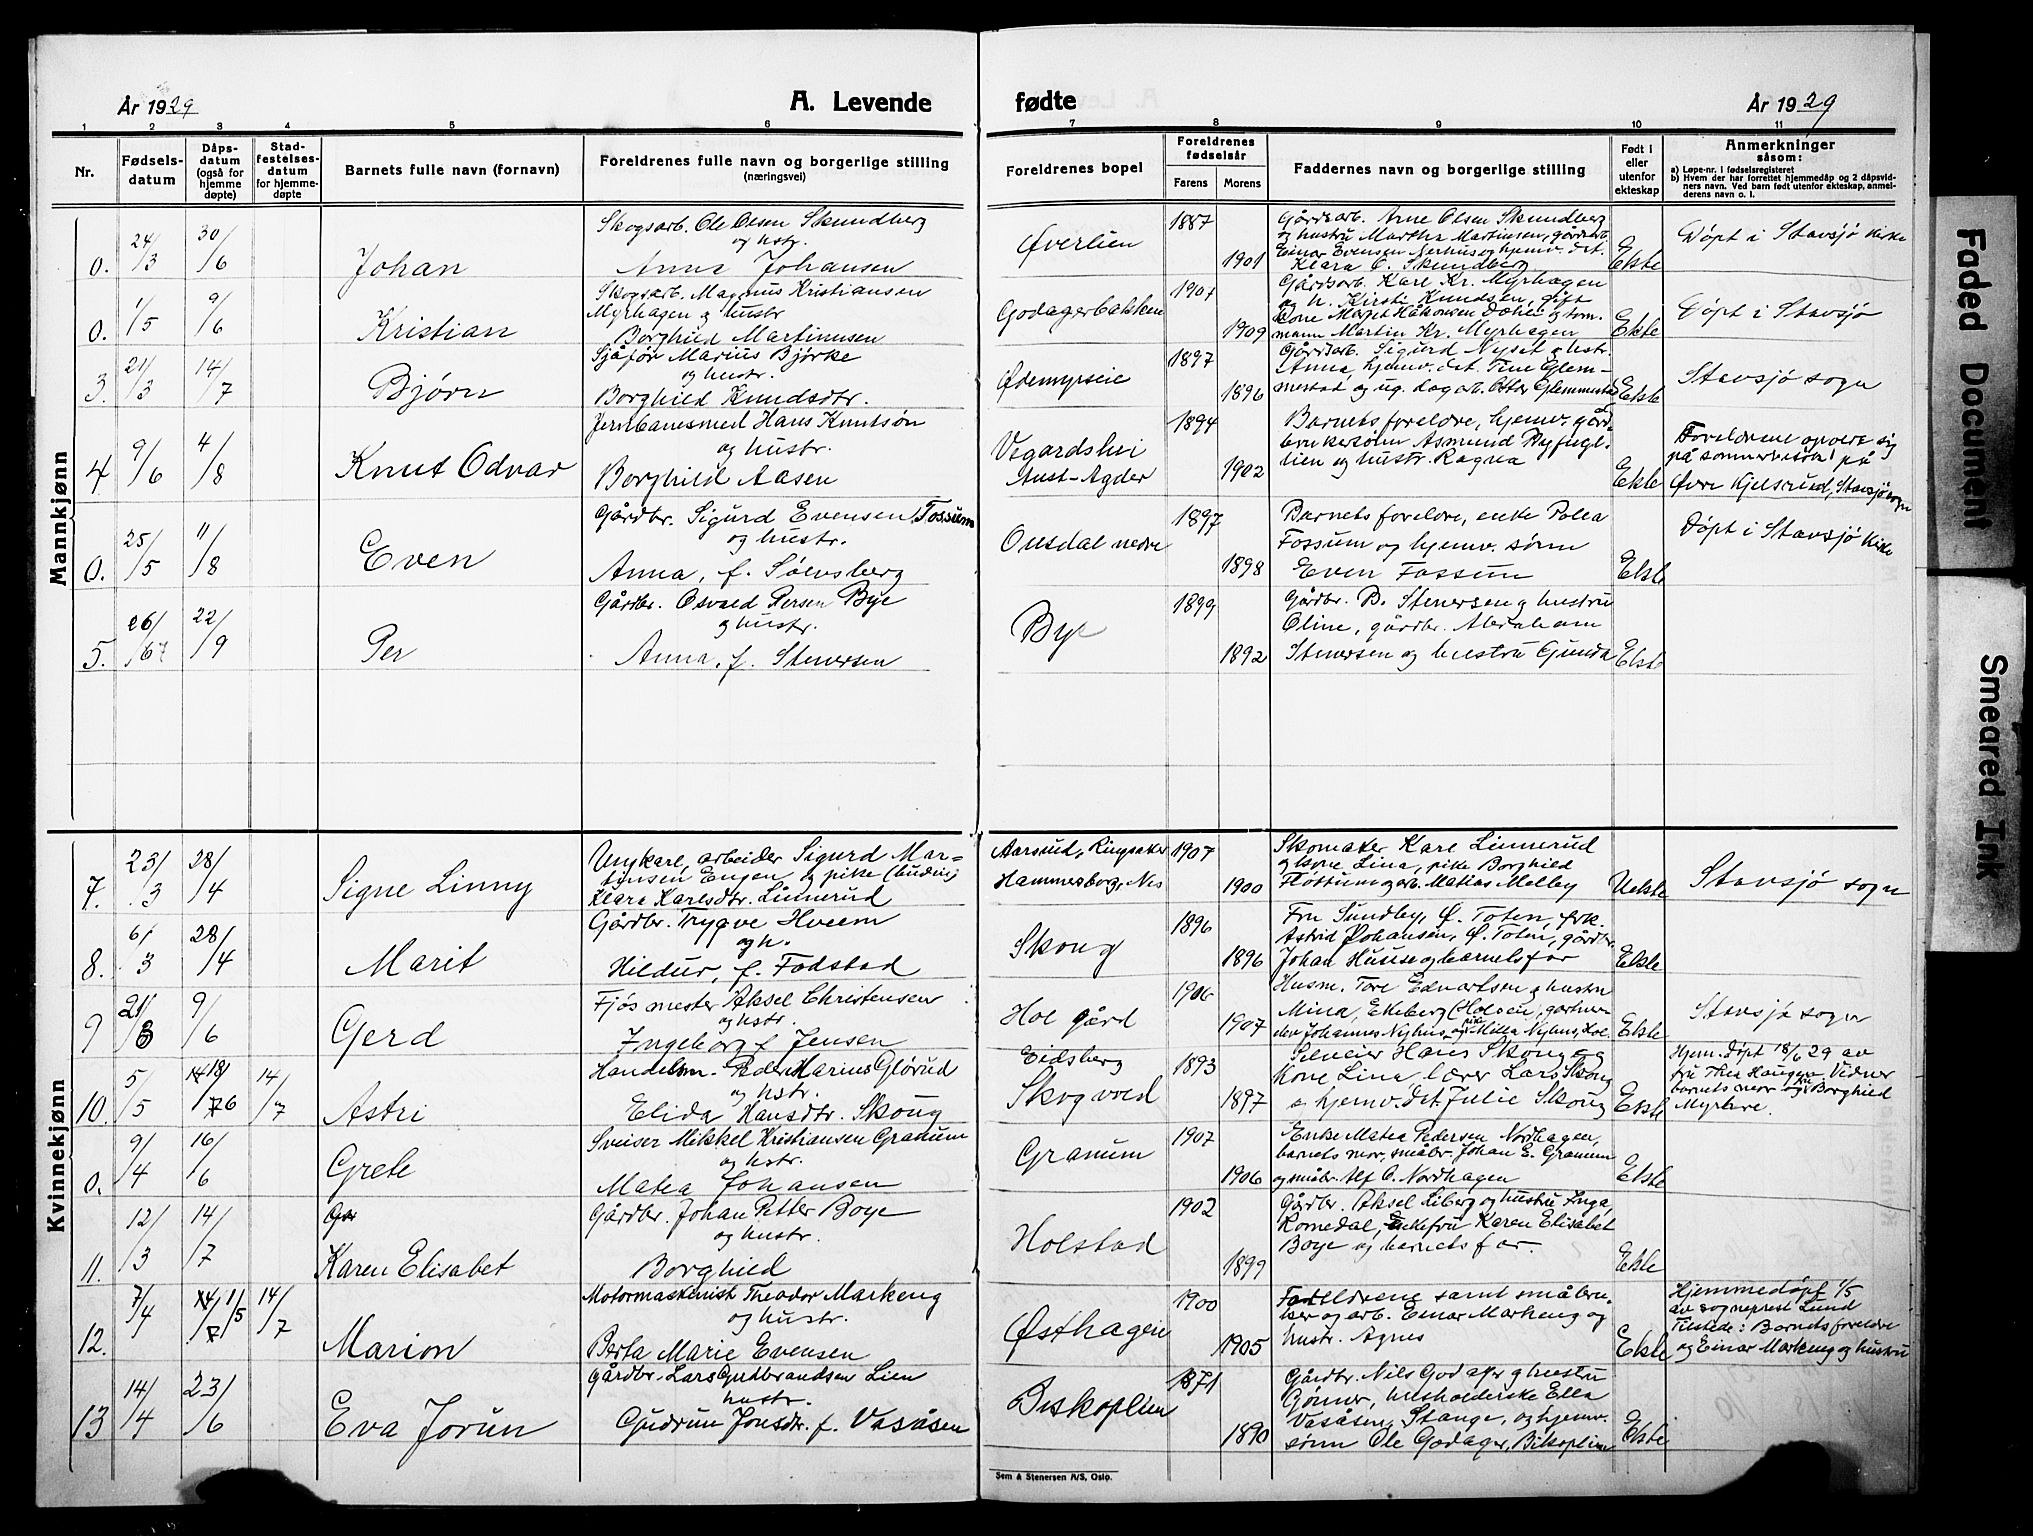 År 1929
A. Levende
fødte
År 1929
1 2 3 4 5 6 7 8 9 10 11
Nr.
Fødsels-
datum
Dåps-
datum
(også for
hjemme
døpte)
Stad-
festelses-
datum
for hjemme-
døpte
Barnets fulle navn (fornavn)
Foreldrenes fulle navn og borgerlige stilling
(næringsvei)
Foreldrenes bopel
Foreldrenes
fødselsår
Farens
Morens
Faddernes navn og borgerlige stilling
Født i
eller
utenfor
ekteskap
Anmerkninger
såsom:
a) Løpe-nr. i fødselsregisteret
b) Hvem der har forrettet hjemmedåp og 2 dåpsvid-
ners navn. Ved barn født utenfor ekteskap, anmel-
derens navn o. l.
Mannkjønn
0. 24/3 30/6
Johan
Skogsarb. Ole Olsen Skundberg
og hstr.
Anna Johansen
Øverlien
1887
1901
Gårdsarb. Arne Olsen Skundberg
og hustru Martha Martinsen, gårdarb.
Einar Evensen og hjemv. det.
Klara O. Skundberg
Ekte
Døpt i Stavsjø kirke
0. 1/5 9/6
Kristian
Skogsarb. Magnus Kristiansen
Myrhagen og hustr
Borghild Martinusen
Godagerbakken
1907
1909
Gårdsarb. Karl Kr. Myrhagen
og h. Kirsti Knudsen, gift
kone Marget Håkonsen Dæhli og tøm-
mann Martin Kr. Myrhagen
Ekte
Døpt i Stavsjø
3. 21/3 14/7
Bjørn
Sjåfør Marius Bjørke
og hustr.
Borghild Knudsdtr.
Ødemyrseie
1897
1896
Gårdsarb. Sigurd Nyset og hustr.
Anna, hjemv. det. Tine Glem-
mestad og ug. dagarb. Otto Glemmestad
Ekte
Stavsjø sogn
4 9/6 4/8
Knut Odvar
Jernbanesmed Hans Knutsøn
og hustr.
Borghild Aasen
Vegardshei
Aust-Agder
1894
1902
Barnets foreldre, hjemv. gård-
brukersønn Asmund Byfugl-
lien og hustr. Ragna
Ekte
Foreldrene opholdt sig
på sommerbesøk på
Øvre Kjelsrud, Stavsjø sogn
0. 25/5 11/8
Even
Gårdbr. Sigurd Evensen Fossum
og hustr.
Anna, f. Sølvsberg
Onsdal nedre
1897
1898
Barnets foreldre, enke Polea
Fossum og hjemv. sønn
Even Fossum
Ekte
Døpt i Stavsjø kirke
5. 26/6 22/9
Per
Gårdbr. Osvald Persen Bye
og hustr.
Anna, f. Stenersen
Bye
1899
1892
Gårdbr. B. Stenersen og hustru
Oline, gårdbr. Abraham
Stenersen og hustru Gunda
Ekte
Kvinnekjønn
7. 23/3 28/4
Signe Linny
Ungkarl, arbeider Sigurd Mar-
tinsen Engen og pike (budeie)
Klara Karlsdtr. Linnerud
Aarsrud, Ringsaker
Hammersborg, Nes
1907
1900
Skomaker Karl Linnerud
og kone Lina, pike Borghild
Fløttum og arb. Matias Melby
Uekte
Stavsjø sogn
8. 6/3 28/4
Marit
Gårdbr. Trygve Hveem
og h.
Hildur, f. Fodstad
Skong
1896
1896
Fru Sundby, Ø. Toten, frk.
Astrid Johansen, Ø. Toten, gårdbr.
Johan Huuse og barnets far
Ekte
9 21/3 9/6
Gerd
Fjøsmester Aksel Christensen
og hstr.
Ingeborg f. Jensen
Hol gård
1906
1907
Husm. Tore Edvartsen og hustru
Mina, Ekeberg (Holsen), gartner-
elev Johannes Nyhus, og pike Milla Nyhus, Hol
Ekte
Stavsjø sogn
10. 5/5 18/6 14/7
Astri
Handelsm. Peder Marius Glørud
og hstr.
Elida Hansdtr. Skoug
Eidsberg
Skogvold
1893
1897
Selveier Hans Skong og
kone Lina, lærer Lars Skong
og hjemv. det. Julie Skoug
Ekte
Hjem.døpt 18/6 29 av
fru Thea Haugen. Vidner
barnets mor og fru Borghild
Myhre.
0. 9/4 16/6
Grete
Sveiser Mikkel Kristiansen Granum
og hstr.
Matea Johansen
Granum
1907
1906
Enke Matea Pedersen Nordhagen,
barnets mor, småbr. Johan E. Granum
og småbr. Alf O. Nordhagen
Ekte
11. 12/3 14/7
Karen Elisabet
Gårdbr. Johan Petter Boye
og hustr.
Borghild
Holstad
1902
1899
Gårdbr. Aksel Liberg og hustru Inga,
Romedal, Enkefru Karen Elisabet
Boye og barnets far.
Ekte
12. 7/4 1/5 14/7
Marion
Motormaskinist Theodor Markeng
og hustr.
Berta Marie Evensen
Østhagen
1900
1905
Foreldrene samt småbru-
ker og arb. Einar Markeng og
hustr. Agnes
Ekte
Hjemmedøpt 1/5
av sogneprest Lund
Tilstede: Barnets foreldre
og Einar Markeng og hustru
13 14/4 23/6
Eva Jorun
Gårdbr. Lars Gudbrandsen Lien
hustr.
Gudrun Jonsdtr. f. Vasåsen
Biskoplien
1871
1890
Gårdbr. Nils Godager og hustru
Gønner, husholderske Ella
Vasåsen, Stange, og hjemv.
sønn Ole Godager, Biskoplien
Ekte
Sem & Stenersen A/S, Oslo.
Faded Document
Smeared Ink